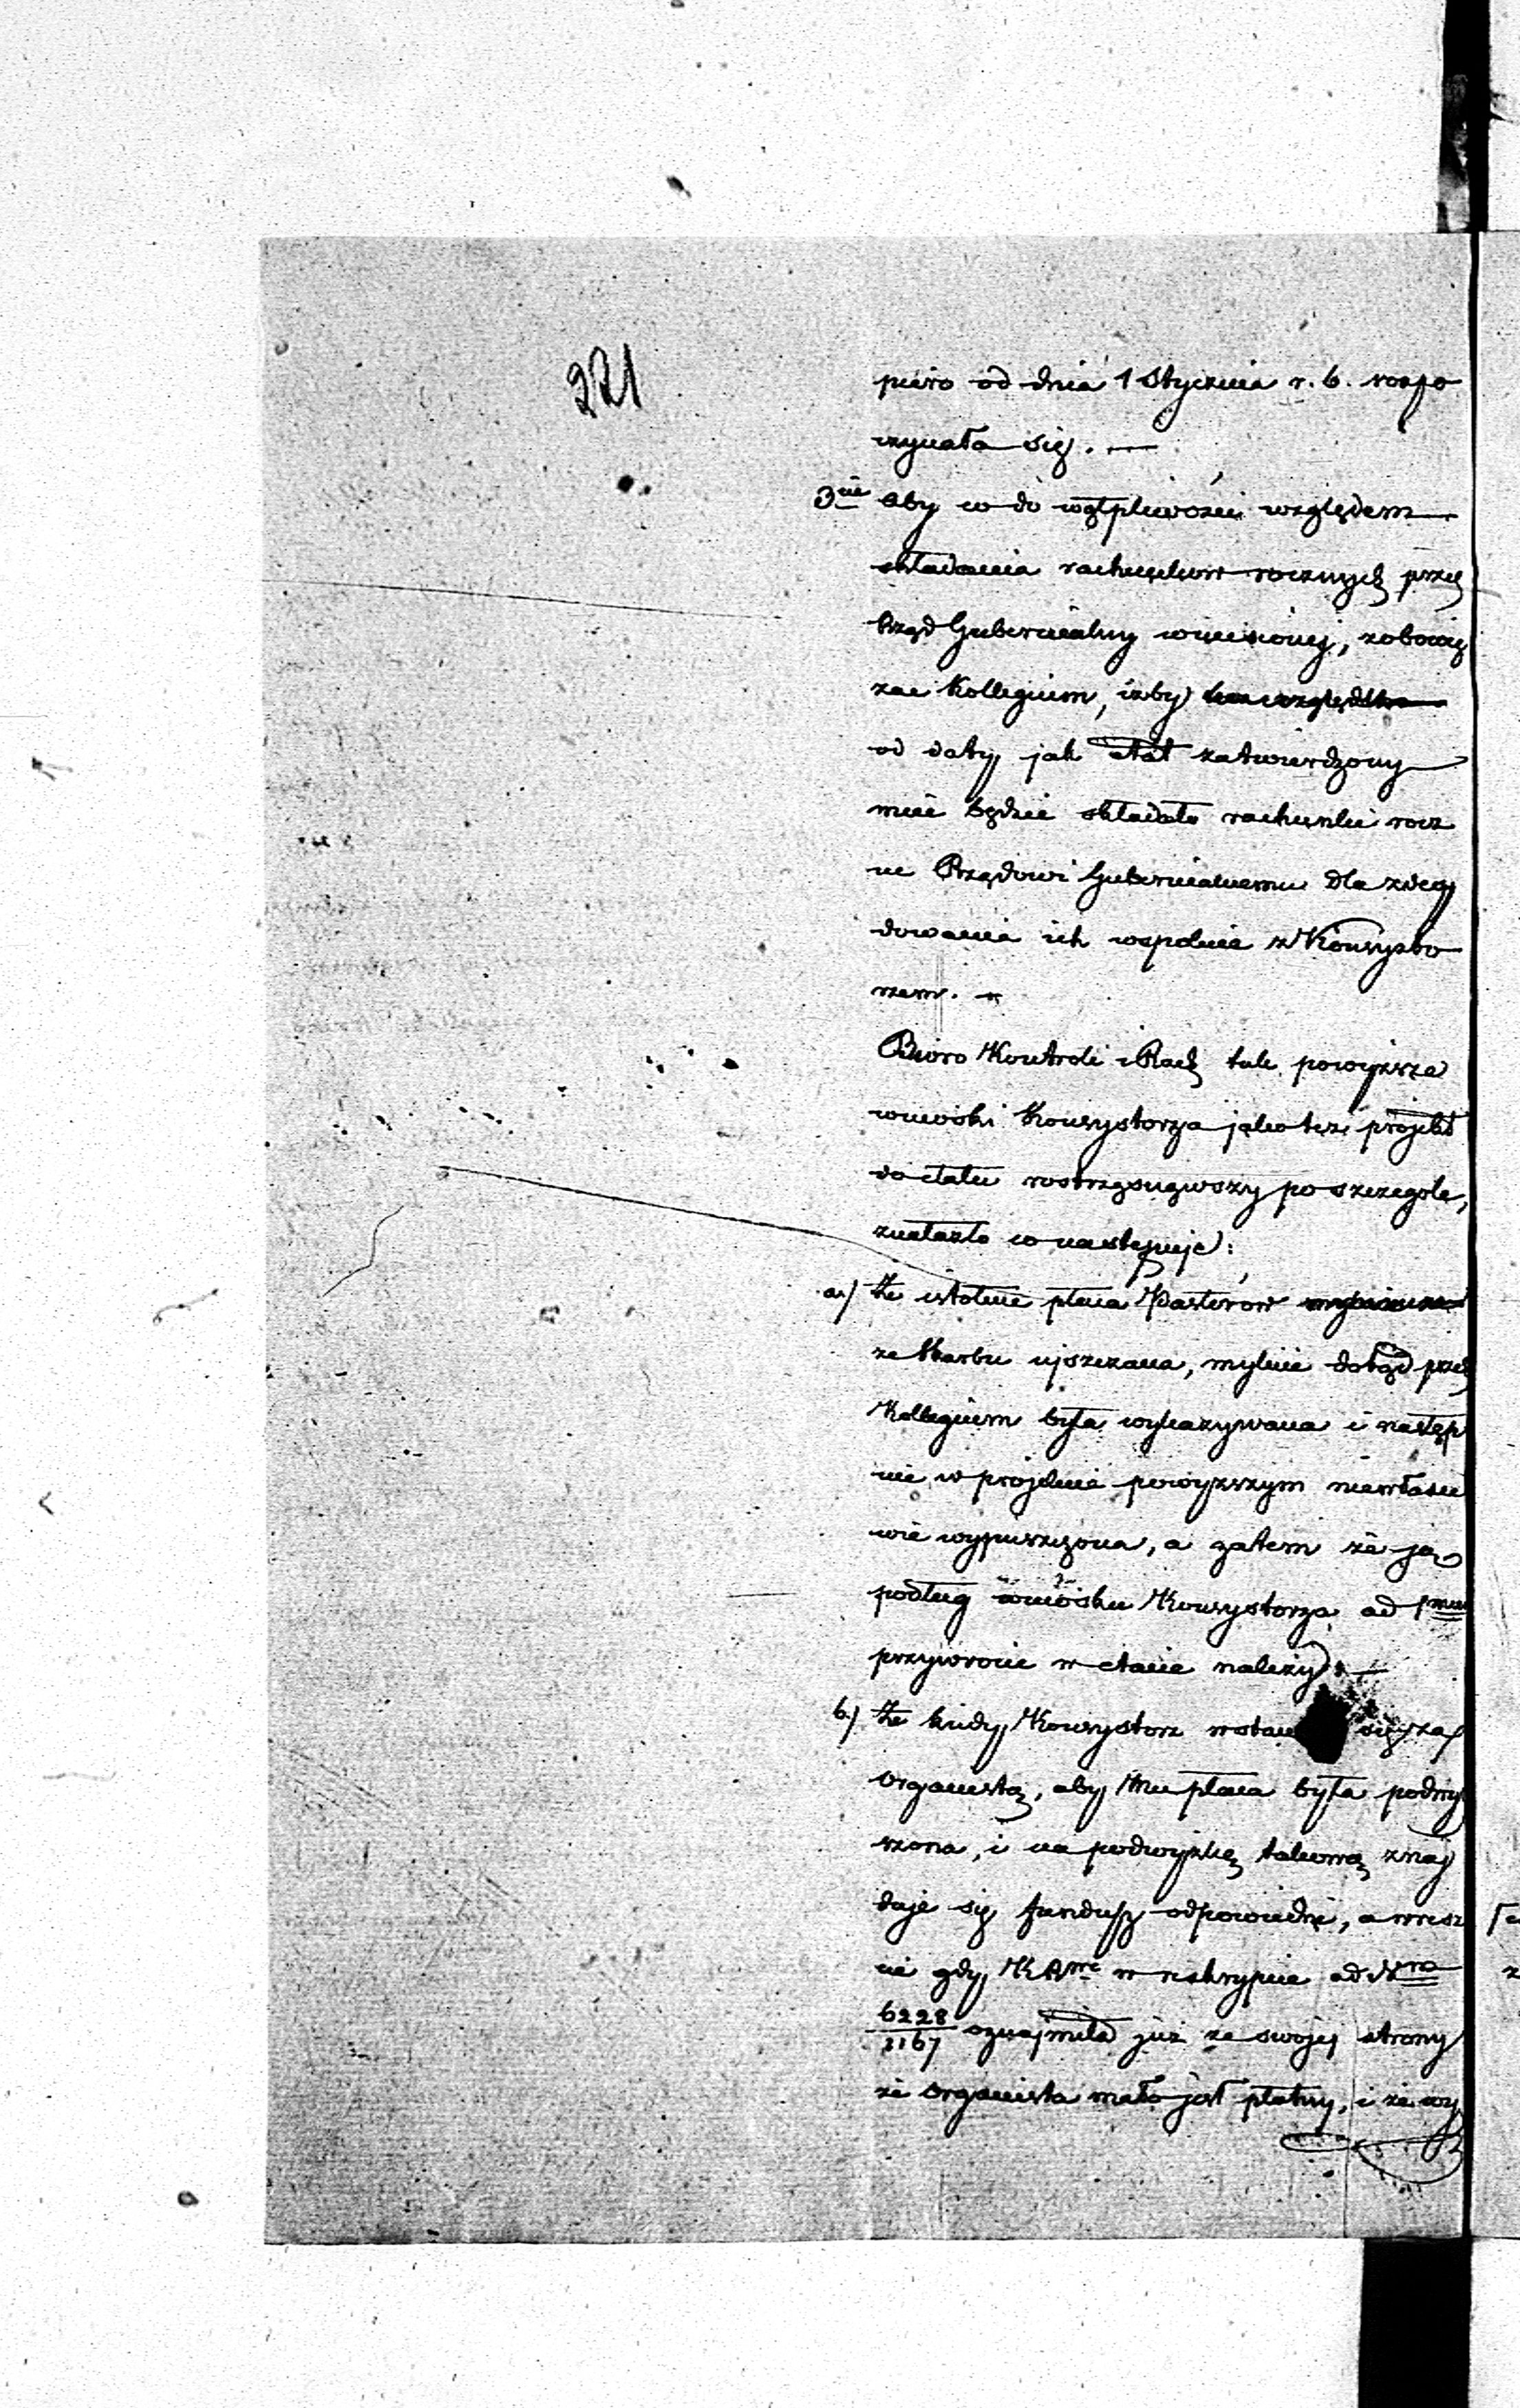 221
piero od dnia 1 Stycznia r. b. rozpo
czynała się. —
3cie Aby co do wątpliwości względem
składania rachunków rocznych przez
Rząd Gubernialny wniesionej, zobowią
zać Kollegium, iżby
od daty jak etat zatwierdzony
mieć będzie składało rachunki rocz
ne Rządowi Gubernialnemu dla zwery
dowania ich wspolnie z Konsysto
rzem. —
Biuro Kontroli i Rach tak powyższe
wnioski Konsystorza jako też projekt
do etatu rostrząsnąwszy po szczególe,
znalazło co następuje:
a) Że istotnie płaca Pastorów
ze Skarbu uiszczana, mylnie dotąd przez
Kollegium była wykazywana i następ
nie w projekcie powyższym niewłaści
wie wypuszczona, a zatem że ją
podług wniosku Konsystorza ad 1mum
przywrócić w etacie należy. —
b) Że kiedy Konsystorz wstawia się za
Organistą, aby Mu płaca była podwy
szona, i na podwyżkę takową znaj
duje się fundusz odpowiedni, a wresz
cie gdy KR w reskrypcie ad Nro
6228/1167 oznajmiła już ze swojej strony
że Organista mało jest płatny, i że wy